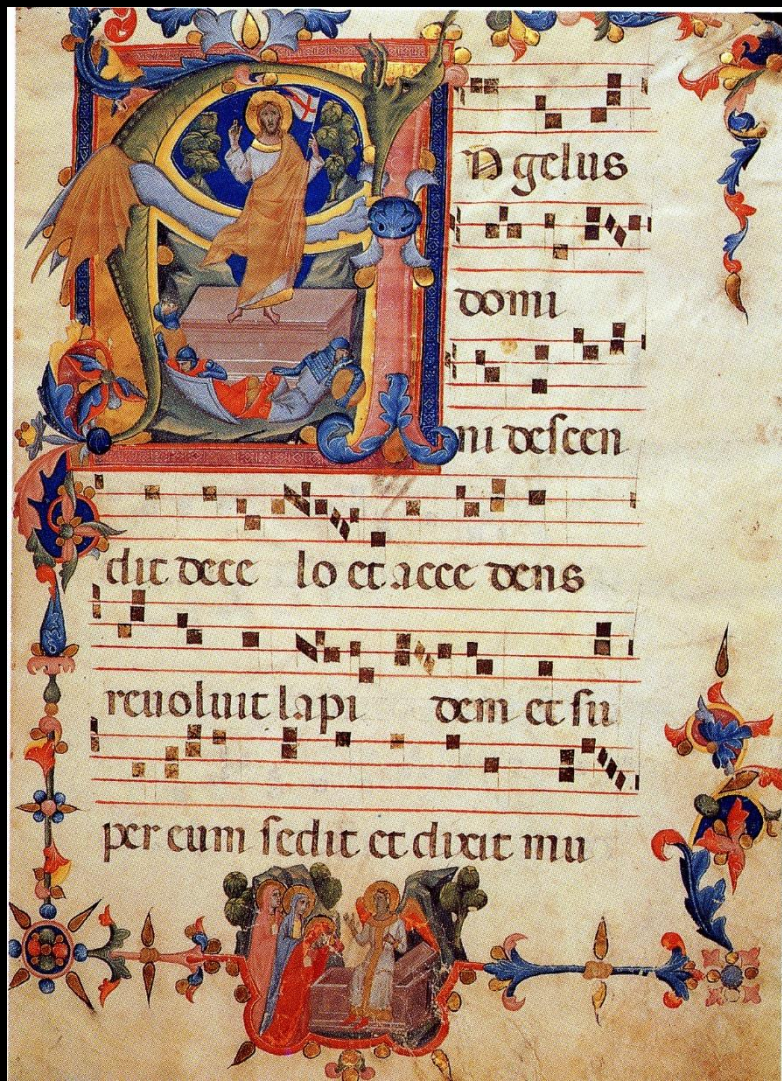 Angelus
domi
ni descen
dit de ce lo et acce dens
revoluit lapi dem et su
per eum sedit et dixit mu